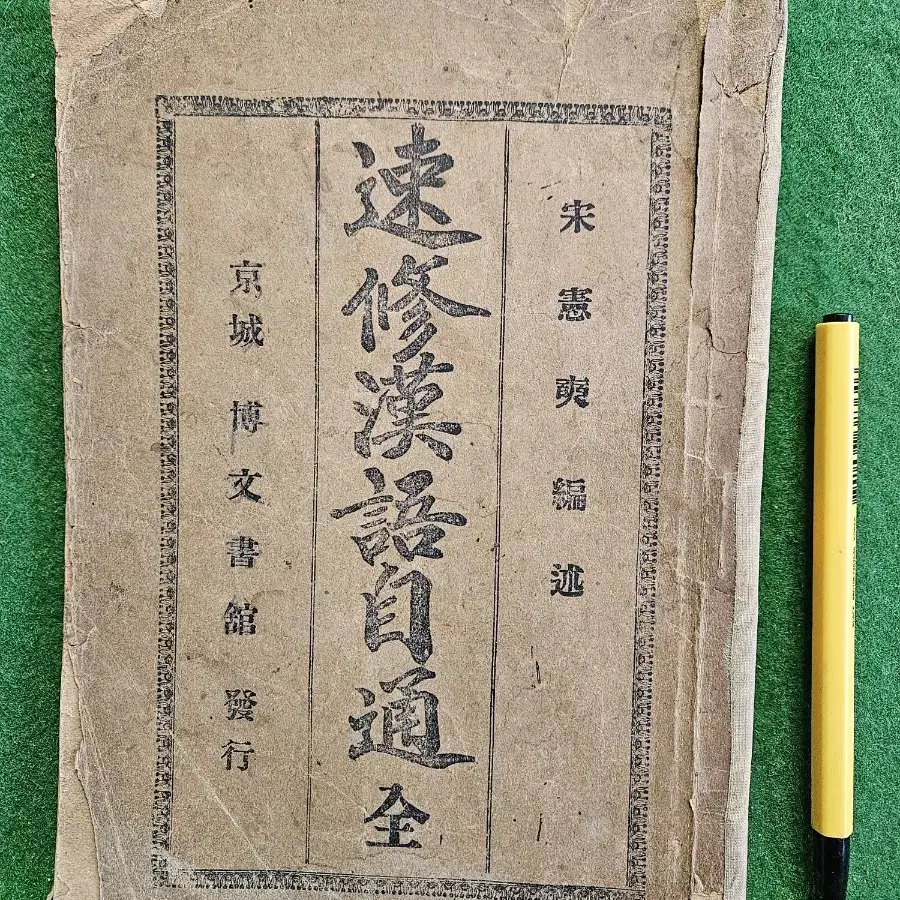 宋憲奭編述
速修漢語自通 全
京城 博文書館 發行